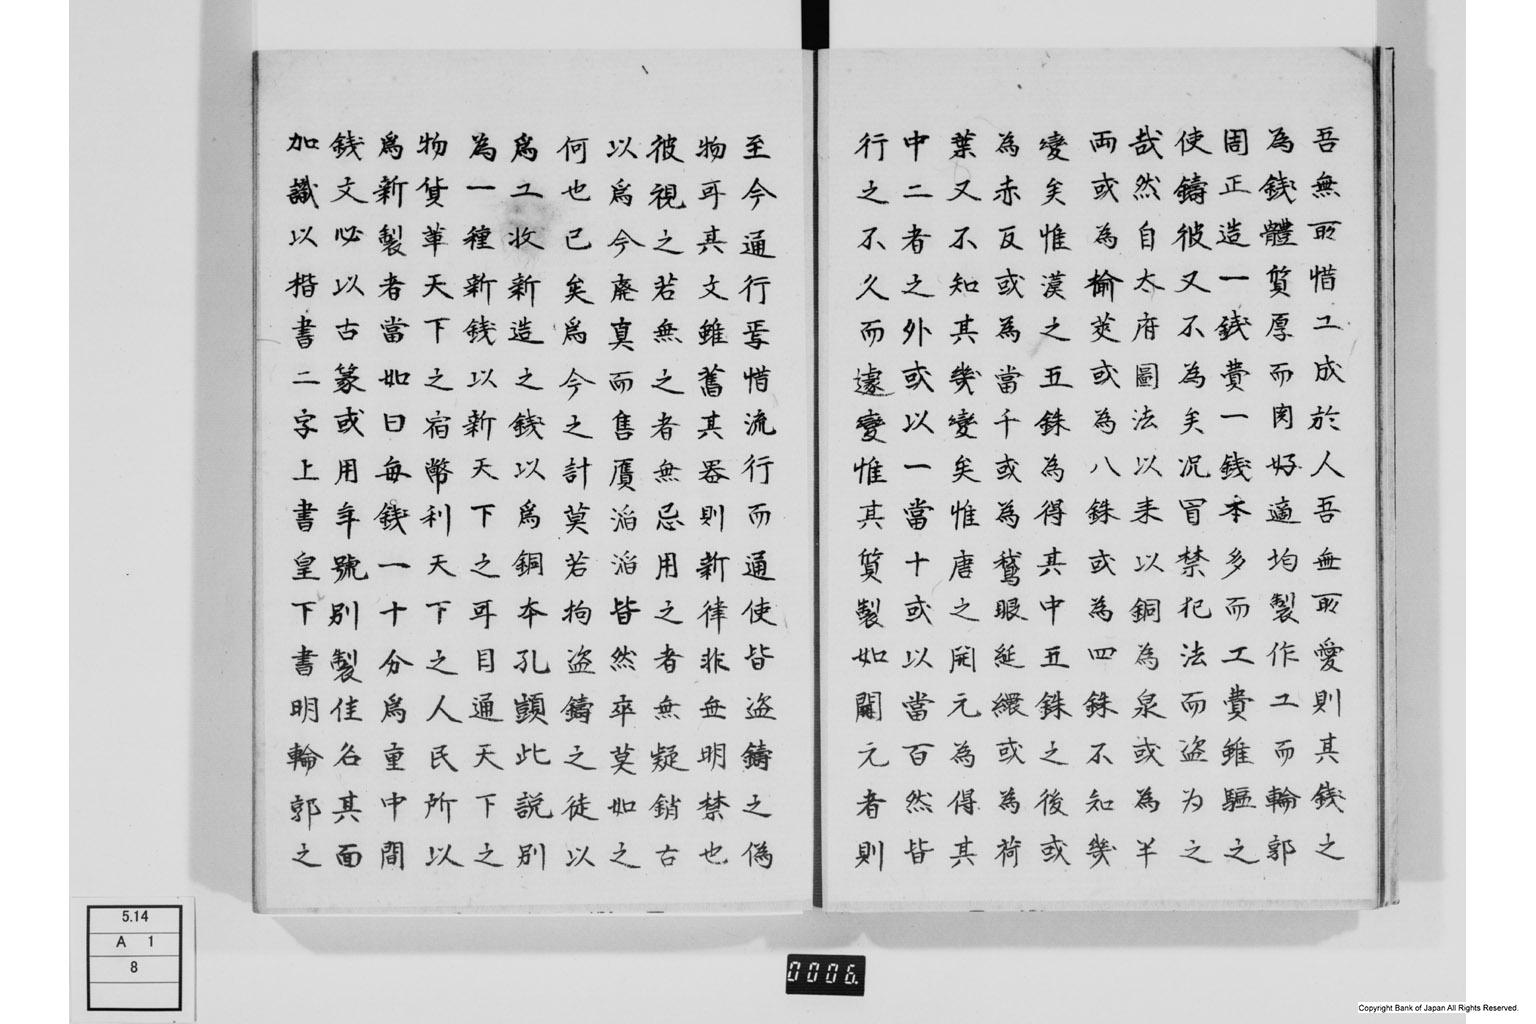 吾無所惜工成於人吾無所愛則其錢之
為錢體質厚而肉好適均製作工而輪郭
周正造一錢費一錢本多而工費雖驅之
使鑄彼又不為矣况冐禁犯法而盗为之
哉然自太府圖法以来以銅為泉或為半
両或為榆莢或為八銖或為四銖不知幾
變矣惟漢之五銖為得其中五銖之後或
為赤仄或為當千或為鵞眼綖繯或為荷
葉又不知其幾變矣惟唐之開元為得其
中二者之外或以一當十或以當百然皆
行之不久而遽變惟其質製如開元者則
至今通行焉惜流行而通使皆盗鑄之偽
物耳其文雖舊其器則新律非無明禁也
彼視之若無之者無忌用之者無疑銷古
以爲今廃真而售贋滔滔皆然卒莫如之
何也已矣爲今之計莫若拘盗鑄之徒以
爲工收新造之錢以爲銅本孔顗此説別
為一種新錢以新天下之耳目通天下之
物貨革天下之宿幣利天下之人民所以
爲新製者當如曰每錢一十分爲重中間
錢文必以古篆或用年號別製佳名其面
加識以楷書二字上書皇下書明輪郭之
5.14
A 1
8
0006.
Copyright Bank of Japan All Rights Reserved.